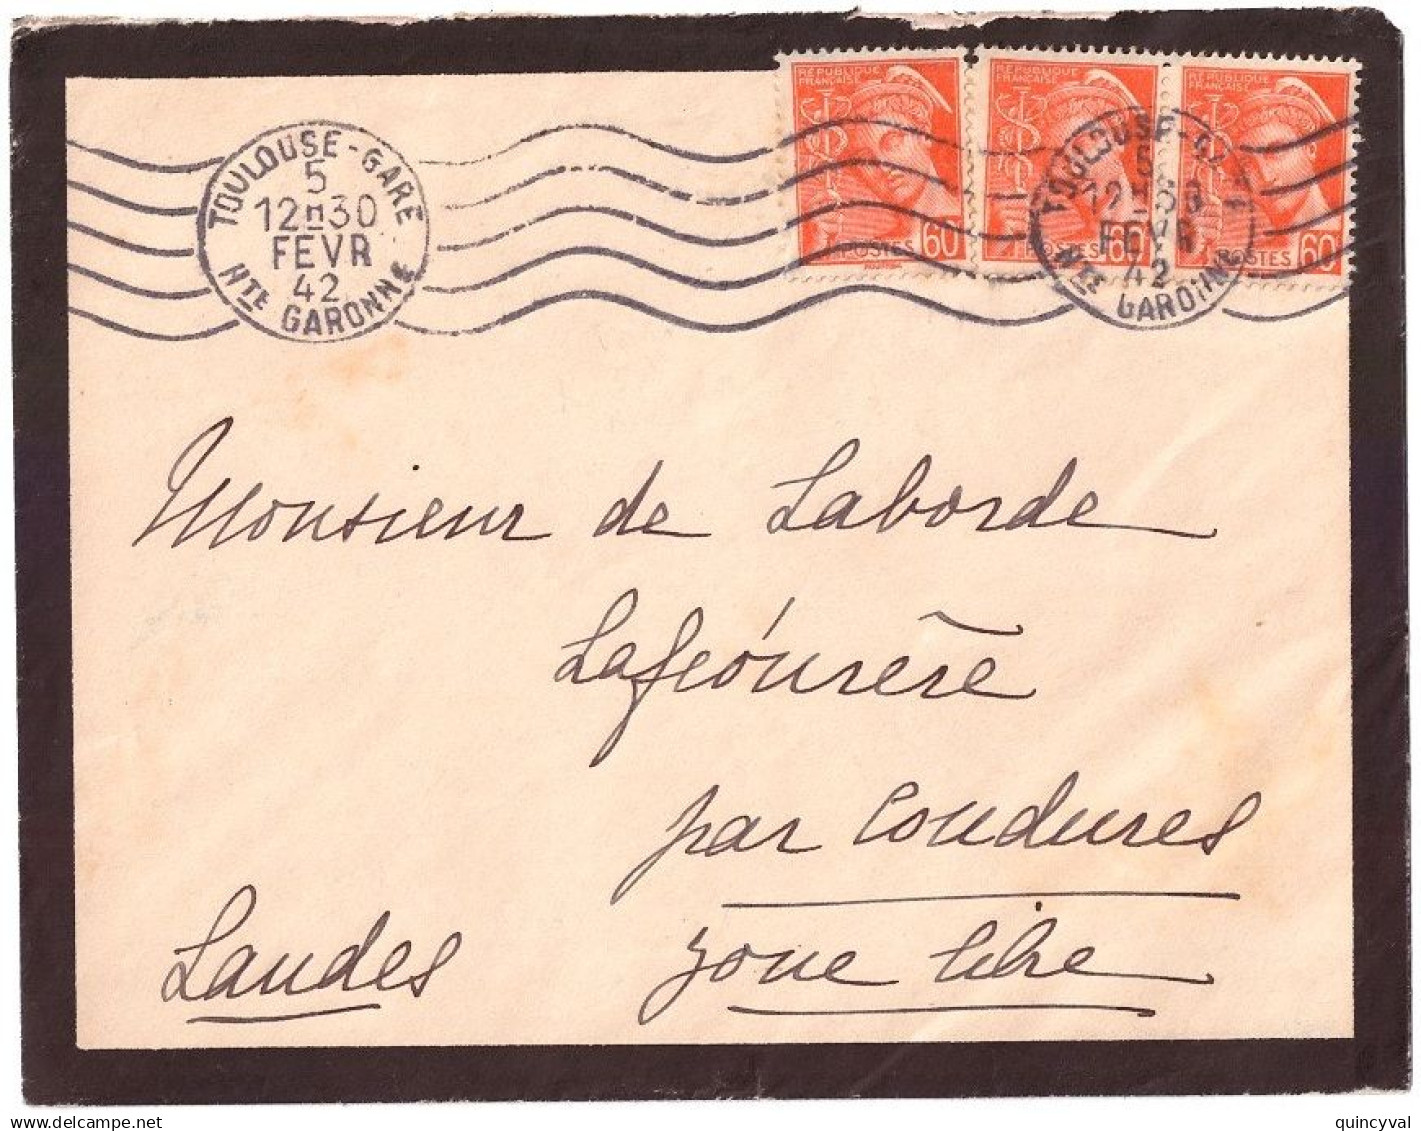 RÉPUBLIQUE FRANÇAISE
POSTES 60
RÉPUBLIQUE FRANÇAISE
POSTES 60
RÉPUBLIQUE FRANÇAISE
POSTES 60
TOULOUSE-GARE
5
12H30
FEVR
42
HTE GARONNE
TOULOUSE-GARE
5
12H30
FEVR
42
HTE GARONNE
Monsieur de Laborde
par Coudures
Landes zone libre
quincyval